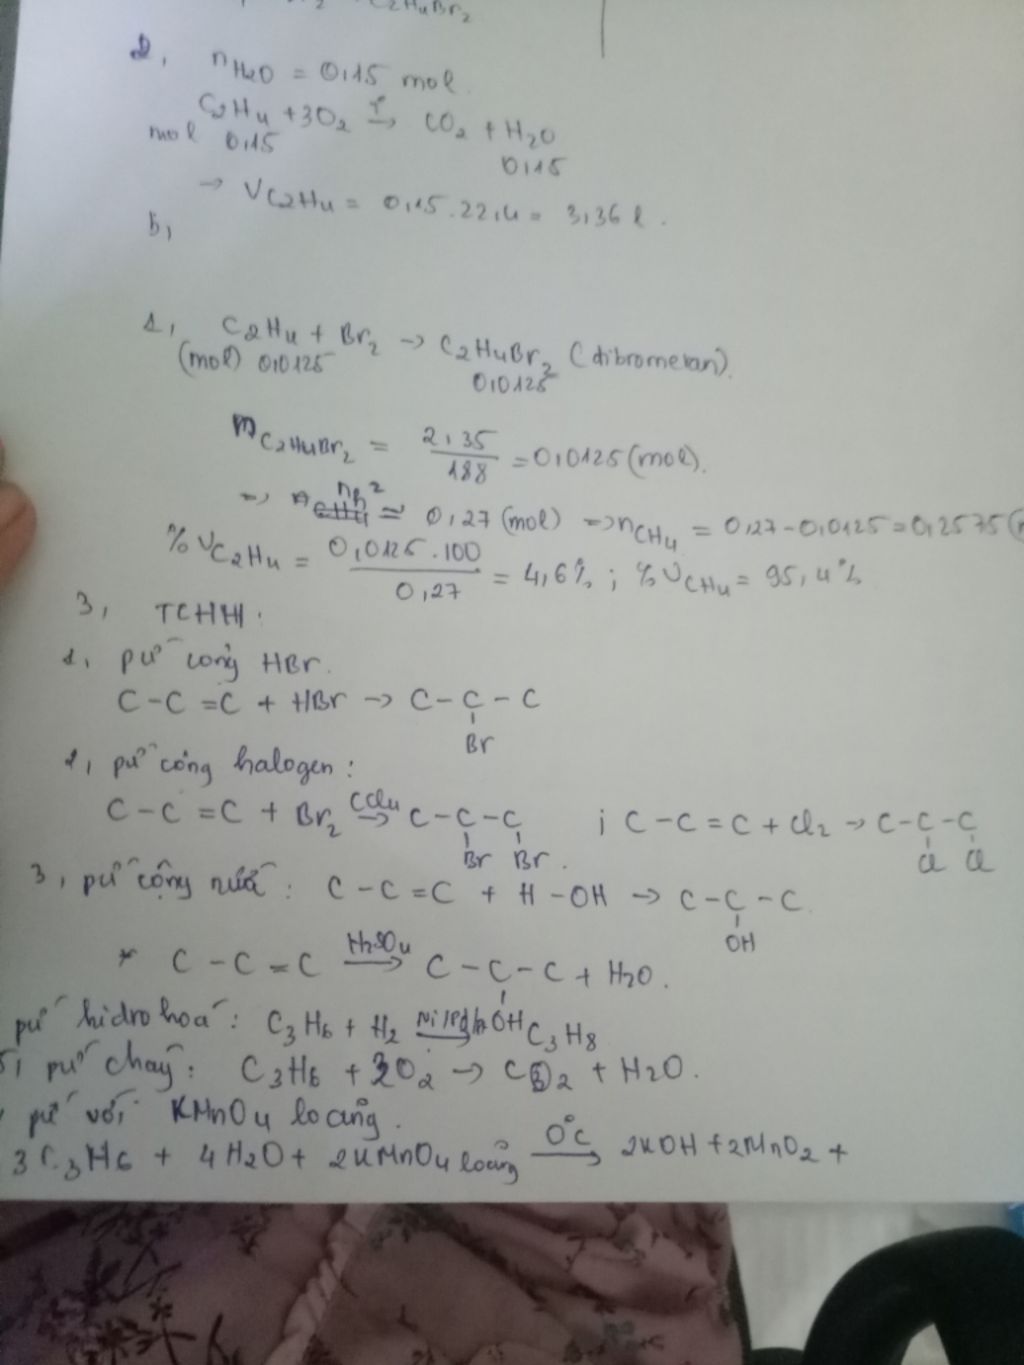 C2H4Br2
2, nH2O = 0,15 mol.
C2H4 + 3O2 t°→ CO2 + H2O
mol 0,15 0,15
→ VC2H4 = 0,15.22,4 = 3,36 l.
b,
1, C2H4 + Br2 → C2H4Br2 (dibrometan).
(mol) 0,0125 0,0125
mC2H4Br2 = 2,35/188 = 0,0125 (mol).
=> nh2 = 0,27 (mol) => nCH4 = 0,27 - 0,0125 = 0,2575 (
%VC2H4 = 0,0125.100/0,27 = 4,6%; %VCH4 = 95,4%
3, TCHH:
1, pứ cộng HBr.
C-C=C + HBr → C-C-C
Br
2, pứ cộng halogen:
C-C=C + Br2 CCl4→ C-C-C ; C-C=C + Cl2 → C-C-C
Br Br. Cl Cl
3, pứ cộng nước: C-C=C + H-OH → C-C-C.
OH
* C-C=C H2SO4→ C-C-C + H2O.
OH
pứ hidro hoá: C3H6 + H2 Ni/Pd/→ C3H8
5, pứ cháy: C3H6 + 3O2 → CO2 + H2O.
pứ với KMnO4 loãng.
3C3H6 + 4H2O + 2KMnO4 loãng 0°C→ 2KOH + 2MnO2 +